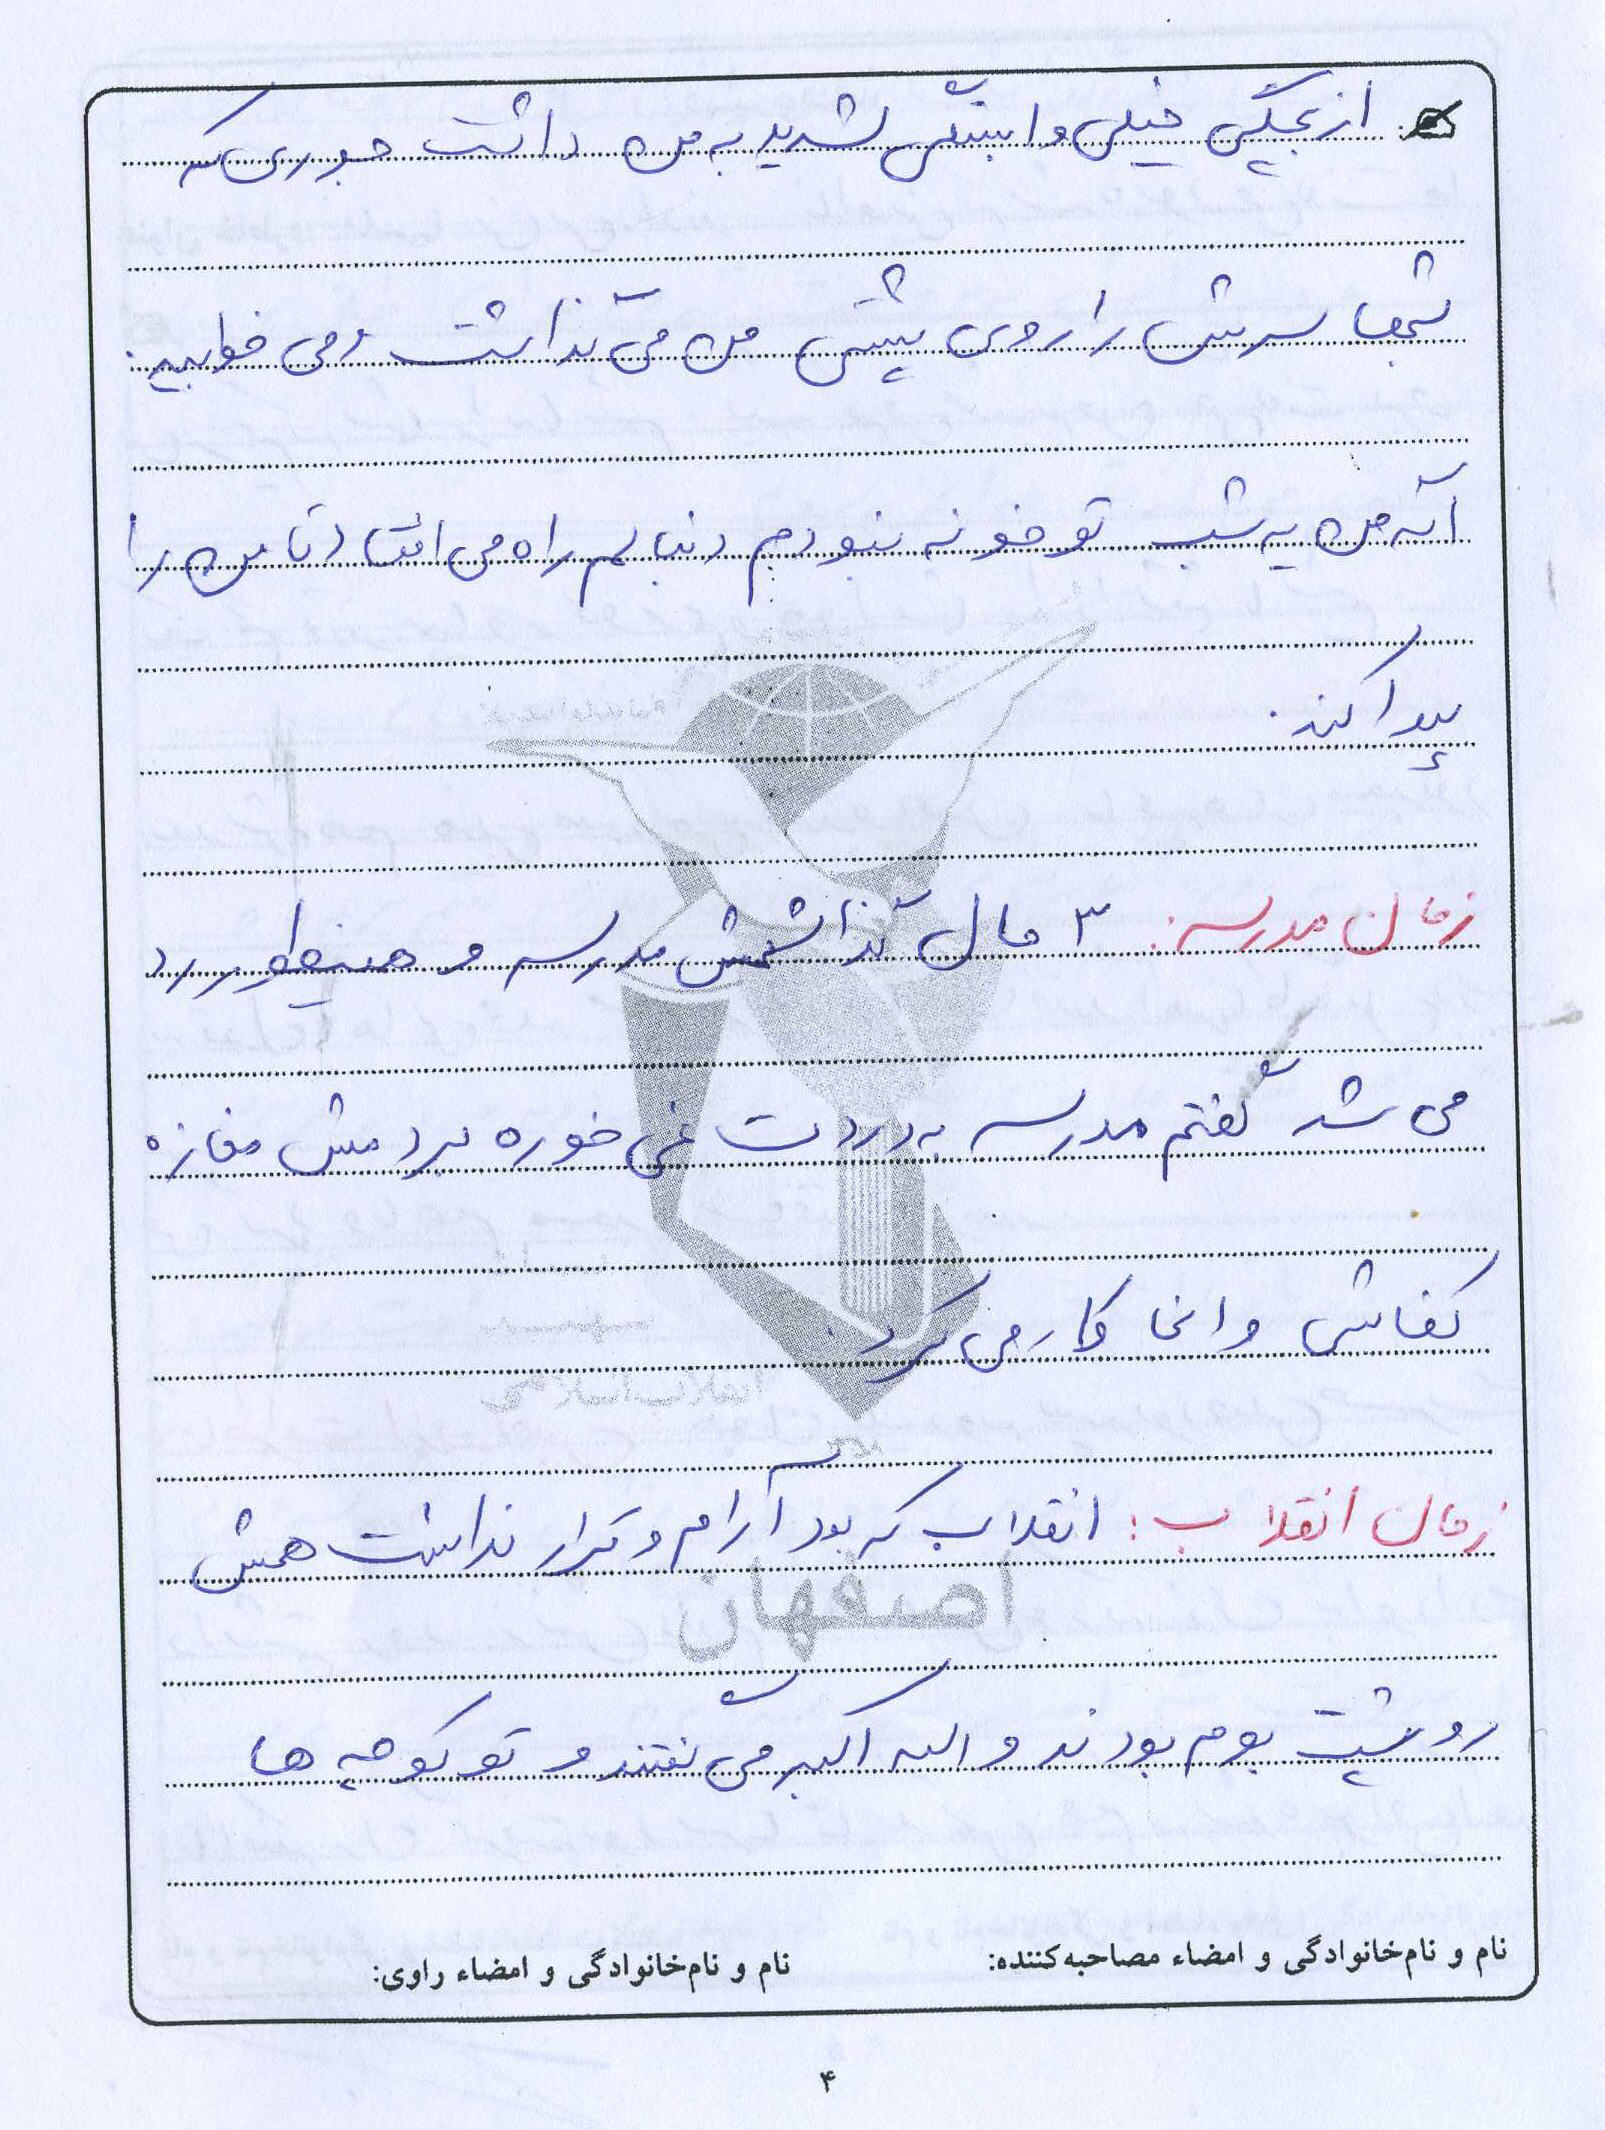 از بچگی خیلی وابستگی شدید به من داشت جوری که
شبها سرش را روی پشتی من می گذاشت و می خوابید.
اگه من یه شب تو خونه نبودم دنبالم راه می افتاد تا من را
پیدا کند.
زمان مدرسه: ۳ سال گذاشتمش مدرسه و همینطور رد
می شد گفتم مدرسه به دردت نمی خوره بردمش مغازه
کفاشی و انجا کار می کرد.
زمان انقلاب: انقلاب که بود آرام و قرار نداشت همش
رو پشت بوم بودند و الله اکبر می گفتند و تو کوچه ها
اصفهان
نام و نام‌خانوادگی و امضاء مصاحبه‌کننده: نام و نام‌خانوادگی و امضاء راوی:
۴